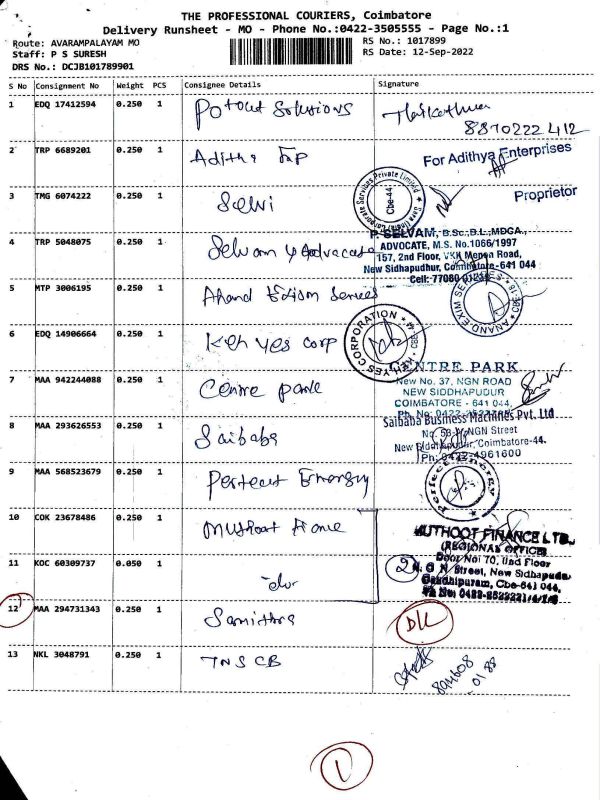 THE PROFESSIONAL COURIERS, Coimbatore
Delivery Runsheet - MO - Phone No.:0422-3505555 - Page No.:1
Route: AVARAMPALAYAM MO
RS No.: 1017899
Staff: P S SURESH
RS Date: 12-Sep-2022
DRS No.: DCJB101789901
S No Consignment No Weight PCS Consignee Details Signature
1 EDQ 17412594 0.250 1 Solutions
8870222412
2 TRP 6689201 0.250 1 Aditha
For Adithya Enterprises
Proprietor
3 TMG 6074222 0.250 1 Selvi
Cbe-44
4 TRP 5048075 0.250 1 Selvam Advocate
P. SELVAM, B.Sc.,B.L.,MDGA.,
ADVOCATE, M.S. No.1066/1997
157, 2nd Floor, VKK Menon Road,
New Sidhapudhur, Coimbatore-641 044
Cell: 77080
5 MTP 3006195 0.250 1 Anand Exim Services
ANAND EXIM SERVICES
6 EDQ 14906664 0.250 1 Keh yes corp
KEH YES CORPORATION
7 MAA 942244088 0.250 1 Centre park
CENTRE PARK
New No. 37, NGN ROAD
NEW SIDDHAPUDUR
COIMBATORE - 641 044.
8 MAA 293626553 0.250 1 Saibaba
Saibaba Business Machines Pvt. Ltd
NGN Street
New Siddhapudur, Coimbatore-44.
Ph: 0422-4961600
9 MAA 568523679 0.250 1 Perfect Energy
Perfect Energy
10 COK 23678486 0.250 1 Muthoot
MUTHOOT FINANCE LTD.,
(REGIONAL OFFICE)
Door No: 70, IInd Floor
11 KOC 60309737 0.050 1 -do-
2
N. G N Street, New Sidhapudur
Gandhipuram, Cbe-641 044.
12 MAA 294731343 0.250 1 Samithra
DL
13 NKL 3048791 0.250 1 TNSCB
1